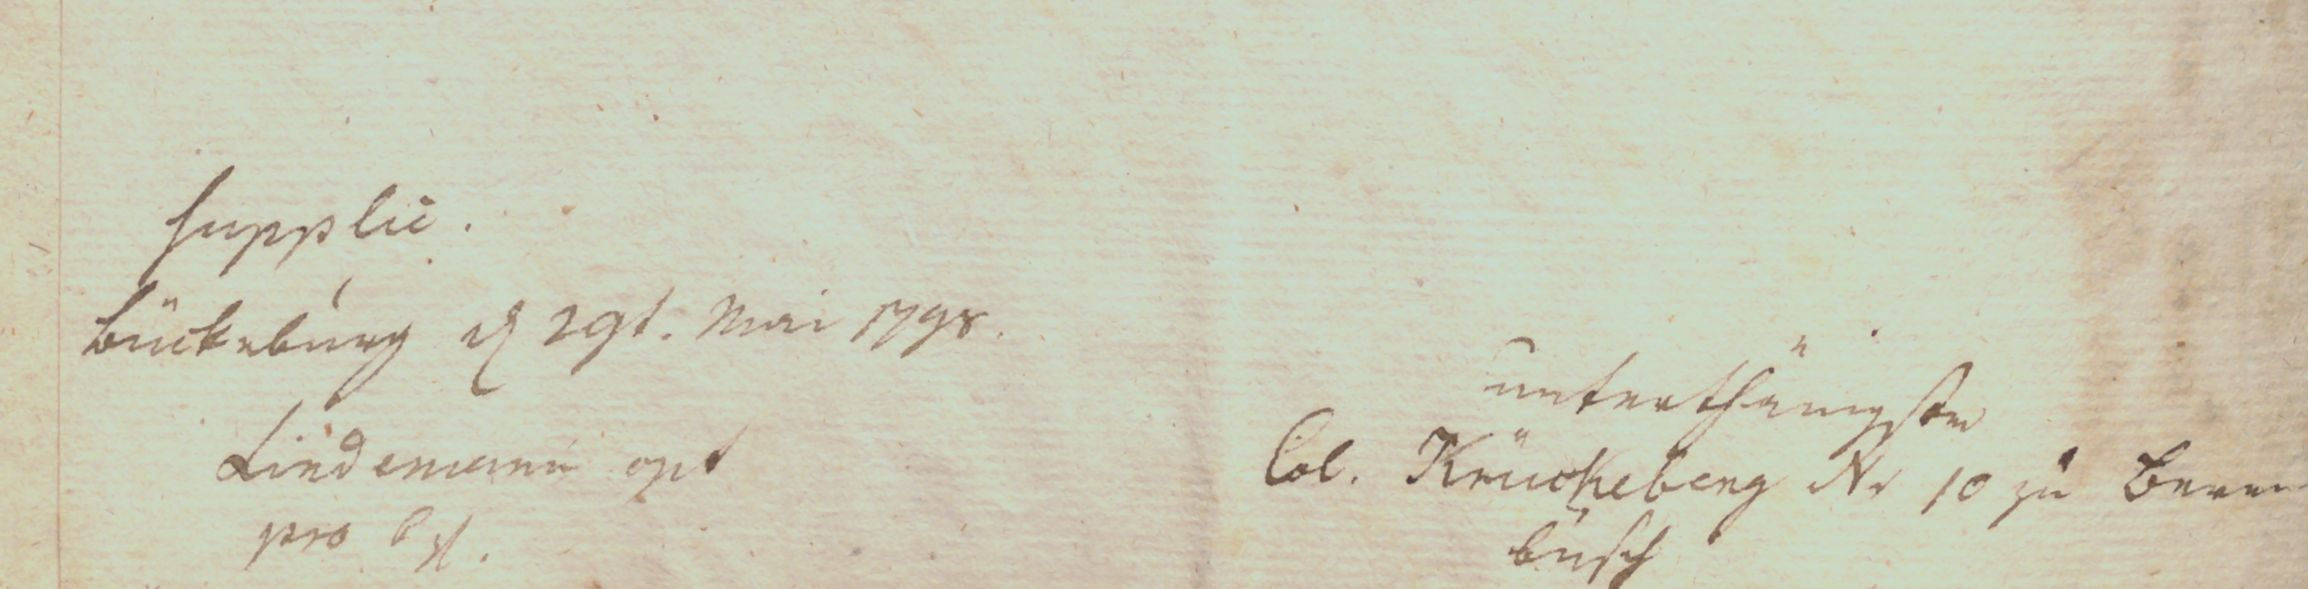 supplic.
Bückeburg d 29t. Mai 1798.
Lindemann opt
pro
unterthänigster
Col. Krückeberg Nr 10 zu Beren
busch